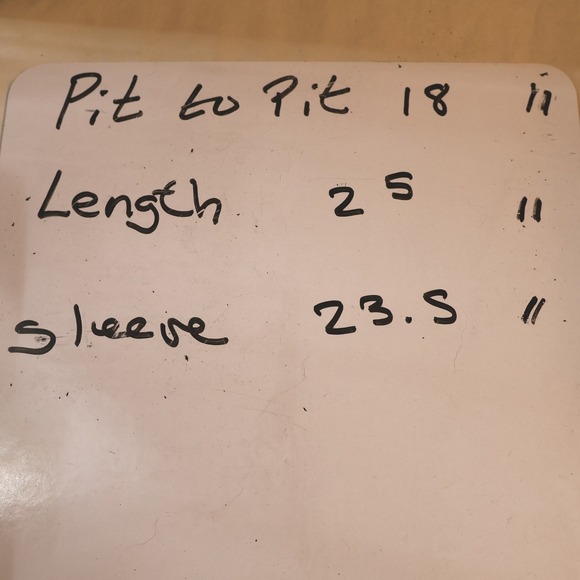 Pit to Pit 18 "
Length 25 "
Sleeve 23.5 "